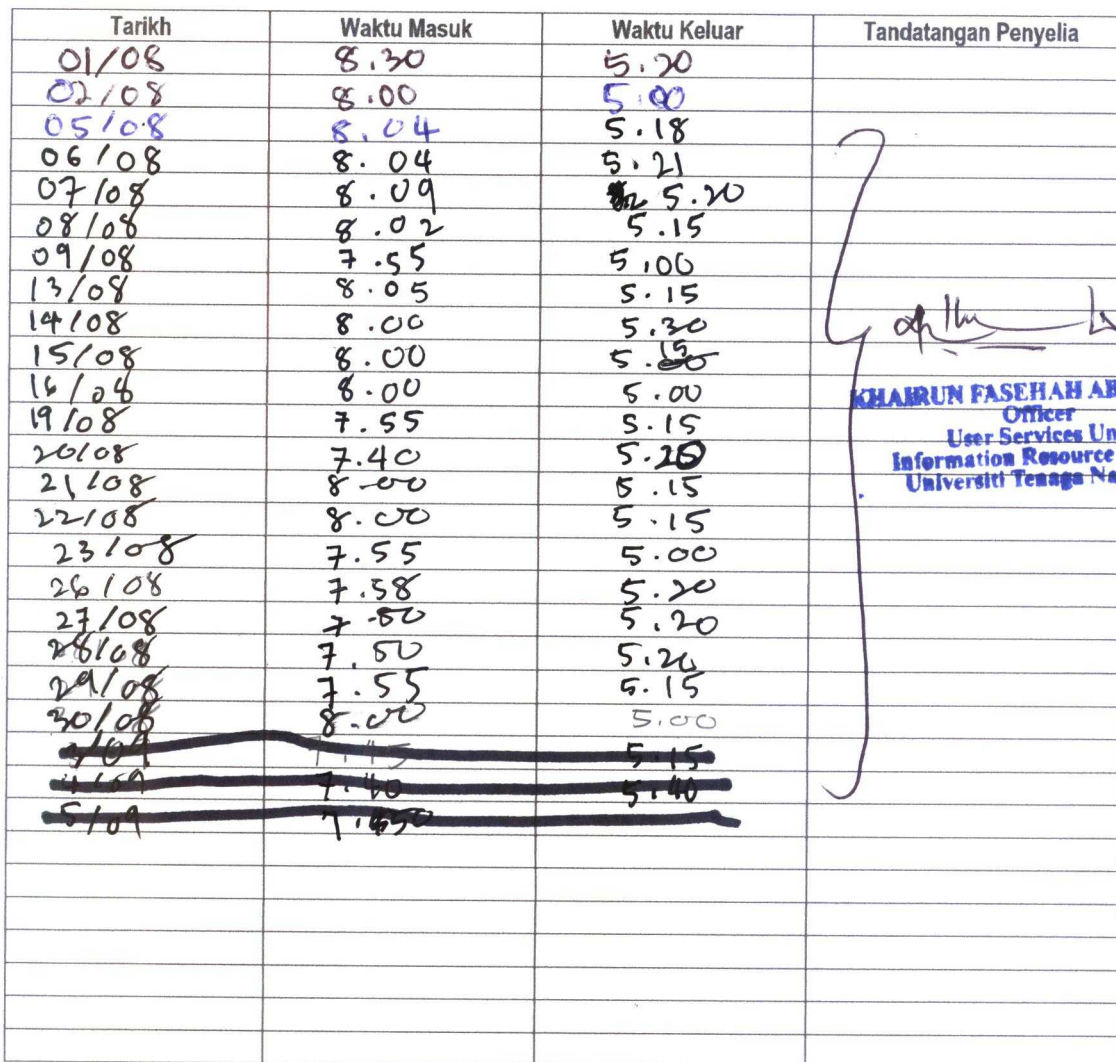 Tarikh Waktu Masuk Waktu Keluar Tandatangan Penyelia
01/08 8.30 5.20
02/08 8.00 5.00
05/08 8.04 5.18
06/08 8.04 5.21
07/08 8.09 5.20
08/08 8.02 5.15
09/08 7.55 5.00
13/08 8.05 5.15
14/08 8.00 5.30
15/08 8.00 5.15
16/08 8.00 5.00
KHAIRUN FASEHAH
19/08 7.55 5.15
Officer
User Services
20/08 7.40 5.20
Information Resource
21/08 8.00 5.15
Universiti Tenaga
22/08 8.00 5.15
23/08 7.55 5.00
26/08 7.58 5.20
27/08 7.50 5.20
28/08 7.50 5.20
29/08 7.55 5.15
30/08 8.00 5.00
3/09 7.45 5.15
4/09 7.40 5.40
5/09